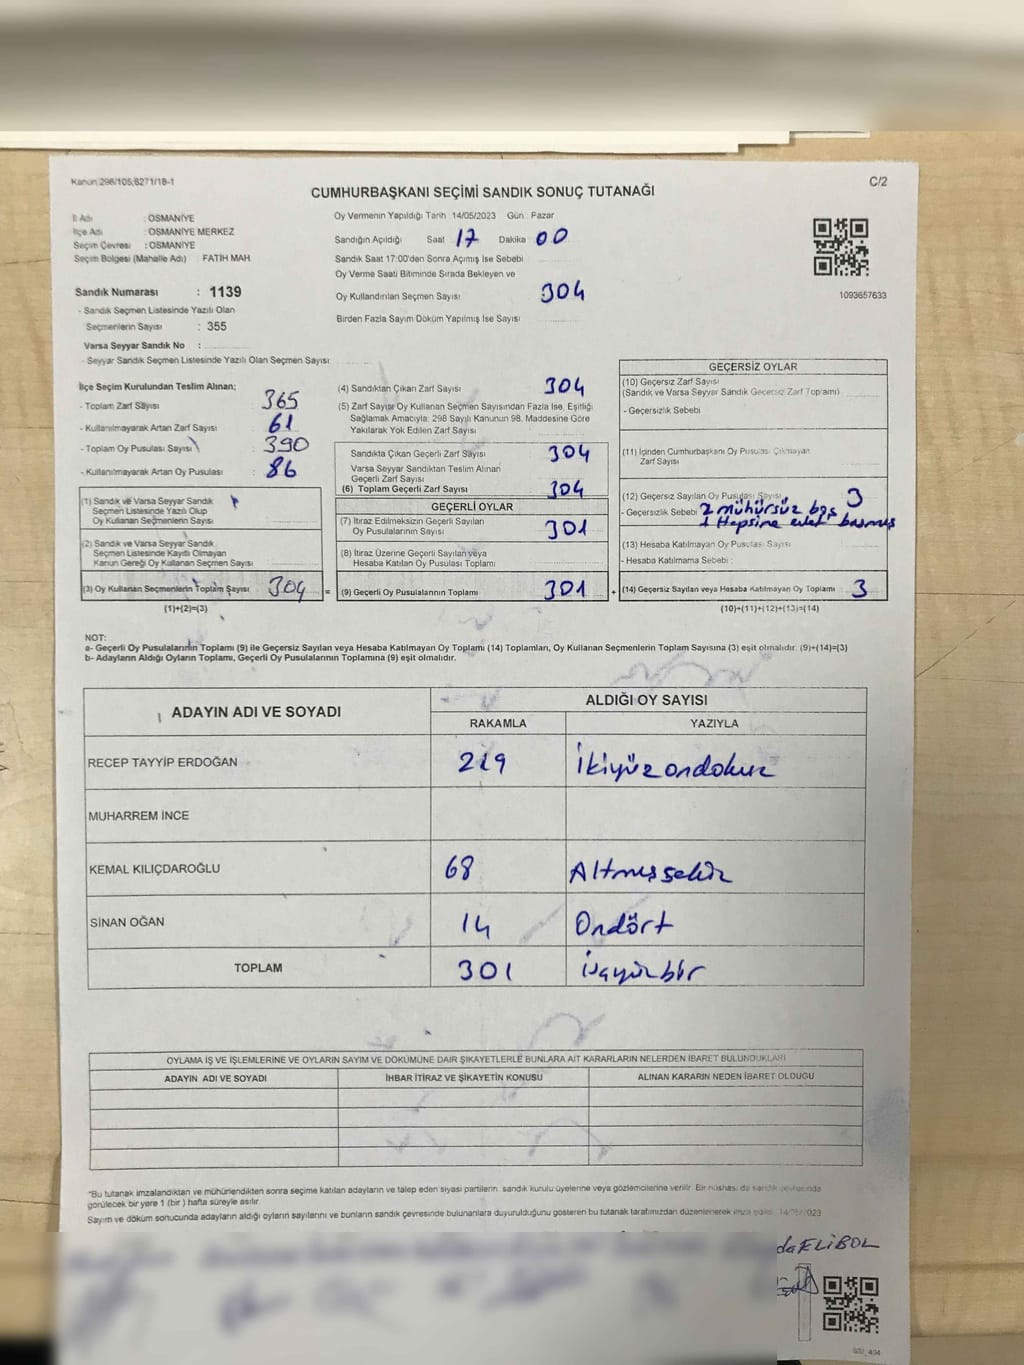 Kanun:298/105,6271/18-1
C/2
CUMHURBAŞKANI SEÇİMİ SANDIK SONUÇ TUTANAĞI
İl Adı : OSMANİYE
İlçe Adı : OSMANİYE MERKEZ
Seçim Çevresi : OSMANİYE
Seçim Bölgesi (Mahalle Adı) FATİH MAH.
Sandık Numarası : 1139
- Sandık Seçmen Listesinde Yazılı Olan
Seçmenlerin Sayısı : 355
Varsa Seyyar Sandık No :
- Seyyar Sandık Seçmen Listesinde Yazılı Olan Seçmen Sayısı:
Oy Vermenin Yapıldığı Tarih 14/05/2023 Gün : Pazar
Sandığın Açıldığı Saat 17 Dakika 00
Sandık Saat 17:00'den Sonra Açımış İse Sebebi
Oy Verme Saati Bitiminde Sırada Bekleyen ve
Oy Kullandırılan Seçmen Sayısı 304
Birden Fazla Sayım Döküm Yapılmış İse Sayısı
1093657633
İlçe Seçim Kurulundan Teslim Alınan;
- Toplam Zarf Sayısı : 365
- Kullanılmayarak Artan Zarf Sayısı : 61
- Toplam Oy Pusulası Sayısı : 390
- Kullanılmayarak Artan Oy Pusulası : 86
(1) Sandık ve Varsa Seyyar Sandık
Seçmen Listesinde Yazılı Olup
Oy Kullanan Seçmenlerin Sayısı
(2) Sandık ve Varsa Seyyar Sandık
Seçmen Listesinde Kayıtlı Olmayan
Kanun Gereği Oy Kullanan Seçmen Sayısı
(3) Oy Kullanan Seçmenlerin Toplam Sayısı 304 =
(1)+(2)=(3)
(4) Sandıktan Çıkan Zarf Sayısı 304
(5) Zarf Sayısı Oy Kullanan Seçmen Sayısından Fazla İse, Eşitliği
Sağlamak Amacıyla; 298 Sayılı Kanunun 98. Maddesine Göre
Yakılarak Yok Edilen Zarf Sayısı
Sandıkta Çıkan Geçerli Zarf Sayısı 304
Varsa Seyyar Sandıktan Teslim Alınan
Geçerli Zarf Sayısı
(6) Toplam Geçerli Zarf Sayısı 304
GEÇERLİ OYLAR
(7) İtiraz Edilmeksizin Geçerli Sayılan
Oy Pusulalarının Sayısı 301
(8) İtiraz Üzerine Geçerli Sayılan veya
Hesaba Katılan Oy Pusulası Toplamı
(9) Geçerli Oy Pusulalarının Toplamı 301 +
GEÇERSİZ OYLAR
(10) Geçersiz Zarf Sayısı
(Sandık ve Varsa Seyyar Sandık Geçersiz Zarf Toplamı)
- Geçersizlik Sebebi
(11) İçinden Cumhurbaşkanı Oy Pusulası Çıkmayan
Zarf Sayısı
(12) Geçersiz Sayılan Oy Pusulası Sayısı 3
- Geçersizlik Sebebi 2 mühürsüz boş
1 Hepsine evet basmış
(13) Hesaba Katılmayan Oy Pusulası Sayısı
- Hesaba Katılmama Sebebi :
(14) Geçersiz Sayılan veya Hesaba Katılmayan Oy Toplamı 3
(10)+(11)+(12)+(13)=(14)
NOT:
a- Geçerli Oy Pusulalarının Toplamı (9) ile Geçersiz Sayılan veya Hesaba Katılmayan Oy Toplamı (14) Toplamları, Oy Kullanan Seçmenlerin Toplam Sayısına (3) eşit olmalıdır. (9)+(14)=(3)
b- Adayların Aldığı Oyların Toplamı, Geçerli Oy Pusulalarının Toplamına (9) eşit olmalıdır.
ADAYIN ADI VE SOYADI
ALDIĞI OY SAYISI
RAKAMLA YAZIYLA
RECEP TAYYİP ERDOĞAN 219 İkiyüz ondokuz
MUHARREM İNCE
KEMAL KILIÇDAROĞLU 68 Altmış sekiz
SİNAN OĞAN 14 Ondört
TOPLAM 301 üçyüz bir
OYLAMA İŞ VE İŞLEMLERİNE VE OYLARIN SAYIM VE DÖKÜMÜNE DAİR ŞİKAYETLERLE BUNLARA AİT KARARLARIN NELERDEN İBARET BULUNDUKLARI
ADAYIN ADI VE SOYADI İHBAR İTİRAZ VE ŞİKAYETİN KONUSU ALINAN KARARIN NEDEN İBARET OLDUĞU
*Bu tutanak imzalandıktan ve mühürlendikten sonra seçime katılan adayların ve talep eden siyasi partilerin, sandık kurulu üyelerine veya gözlemcilerine verilir. Bir nüshası da sandık çevresinde
görülecek bir yere 1 (bir) hafta süreyle asılır.
Sayım ve döküm sonucunda adayların aldığı oyların sayılarını ve bunların sandık çevresinde bulunanlara duyurulduğunu gösteren bu tutanak tarafımızdan düzenlenerek imza edildi. 14/05/2023
da ELİBOL